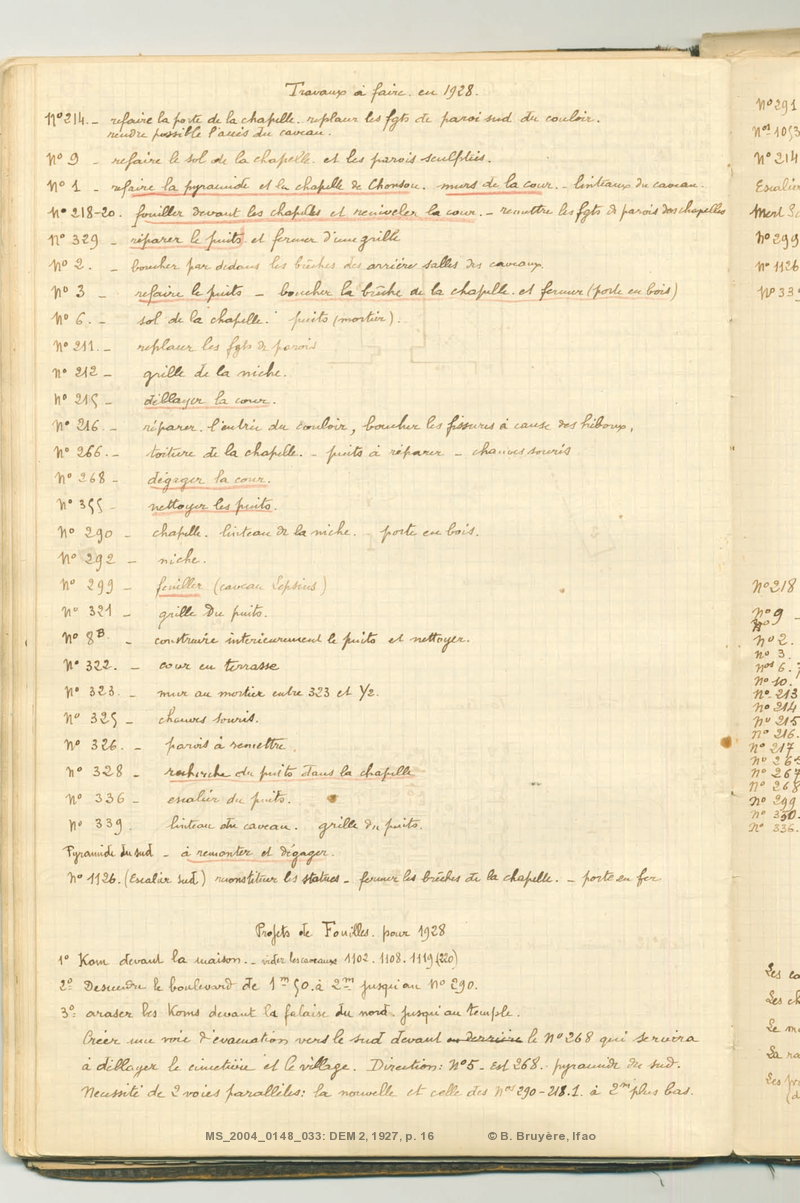 Travaux à faire en 1928.
N° 214. - refaire la porte de la chapelle. replacer les fgts de paroi sud du couloir.
rendre possible l'accès du caveau.
N° 9 - refaire le sol de la chapelle et les parois sculptées.
N° 1 - refaire la pyramide et la chapelle de Chonsou. murs de la cour. - linteaux du caveau.
N° 218-20. fouiller devant les chapelles et reniveler la cour. - remettre les fgts de parois des chapelles
N° 329 - réparer le puits et fermer d'une grille
N° 2. - boucher par dedans les brêches des arrière salles des caveaux.
N° 3 - refaire le puits - boucher la brêche de la chapelle. et fermer (porte en bois)
N° 6. - sol de la chapelle. puits (mortier).
N° 211. - replacer les fgts de parois
N° 212 - grille de la niche.
N° 215 - déblayer la cour.
N° 216. - réparer l'entrée du couloir, boucher les fissures à cause des hiboux.
N° 266. - toiture de la chapelle. - puits à réparer - chauves souris
N° 268 - dégager la cour.
N° 355 - nettoyer les puits.
N° 290 - chapelle. linteau de la niche. - porte en bois.
N° 292 - niche.
N° 299 - fouiller (caveau Lepsius)
N° 321 - grille du puits.
N° 8B. - construire interieurement le puits et nettoyer.
N° 322. - cour en terrasse
N° 323. - mur au mortier entre 323 et Y2.
N° 325 - chauves souris.
N° 326. - parois à remettre.
N° 328 - recherche du puits dans la chapelle
N° 336 - escalier du puits.
N° 339. linteau du caveau. grille du puits.
Pyramide du sud - à remonter et dégager.
N° 1126. (Escalier Sud) reconstituer les statues - fermer les brêches de la chapelle. - porte en fer
Projets de Fouilles pour 1928
1° Kom devant la maison. - vider les caveaux 1102. 1108. 1119 (320)
2° Descendre le boulevard de 1m50. à 2m jusqu'au N° 290.
3° araser les Koms devant la falaise du nord jusqu'au temple.
Créer une voie d'évacuation vers le sud devant ou derrière le N° 268 qui servira
à déblayer le cimetière et le village. Direction: N° 5 - Est 268. pyramide du sud.
Necessité de 2 voies parallèles: la nouvelle et celle des Nos 290-218.1. à 2m plus bas.
N° 291
Nos 1053
N° 214
Escalier
N° 299
N° 1126
N° 339
N° 218
N° 9 -
N° 2.
N° 3.
Nos 6.
N° 10.
N° 213
N° 214
N° 215
N° 216.
N° 217
N° 265
N° 267
N° 268
N° 299
N° 330.
N° 336.
MS_2004_0148_033: DEM 2, 1927, p. 16 © B. Bruyère, Ifao